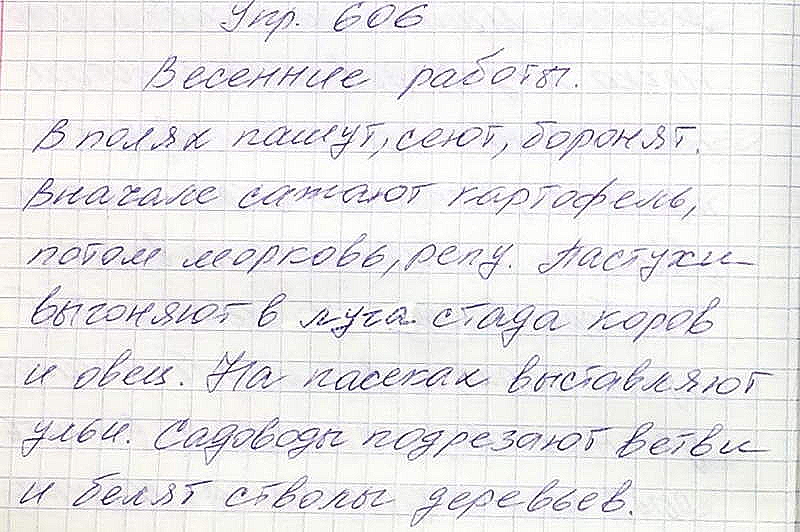 Упр. 606
Весенние работы.
В полях пашут, сеют, боронят.
Вначале сажают картофель,
потом морковь, репу. Пастухи
выгоняют в луга стада коров
и овец. На пасеках выставляют
ульи. Садоводы подрезают ветви
и белят стволы деревьев.